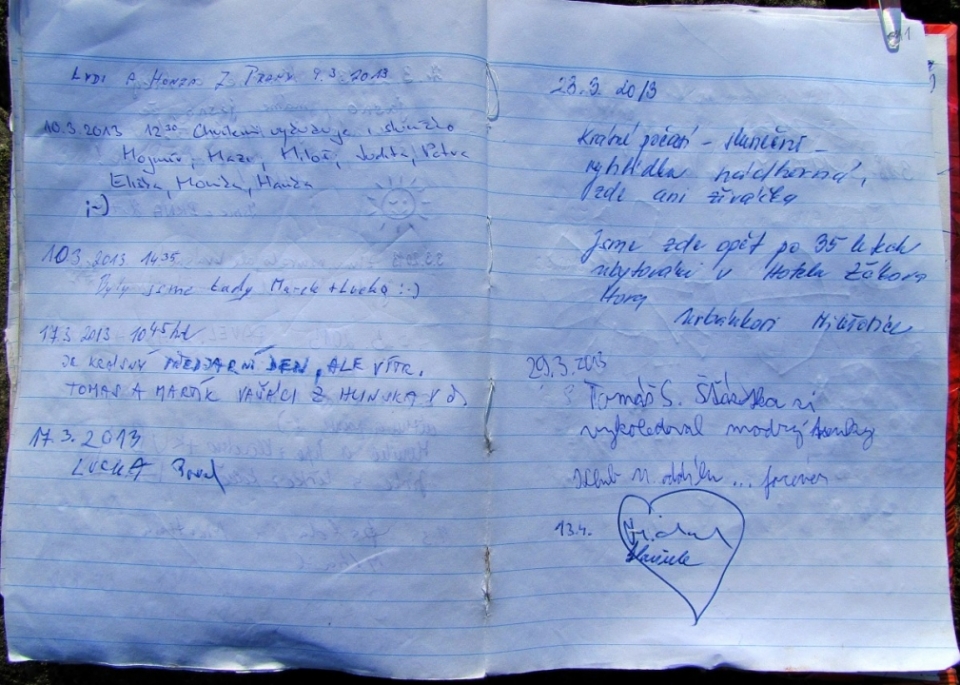 LYDI A HONZA Z PRAHY 9.3.2013
10.3.2013 12³⁰ Chuchení vyčuzuje i sluníčko
Hojmír, Maze, Miloš, Judita, Petra
Eliška, Monča, Hanča
;-)
10.3.2013 14³⁵
Byly jsme tady Marek + Lucka :-)
17.3.2013 10⁴⁵
JE KRÁSNÝ PŘEDJARNÍ DEN, ALE VÍTR.
TOMAS A MARTÍK VAŠÁCI Z HLINSKA
17.3.2013
LUCKA Pavel
28.3.2013
Krásné počasí - sluneční -
vyhlídka nádherná,
zde ani živáčka
Jsme zde opět po 35 letech
ubytováni v Hotelu Zákova
Hora
Urbánkovi
29.3.2013
Tomáš S. si
vykoledoval modrý
oddílu ... forever
13.4.
Michal